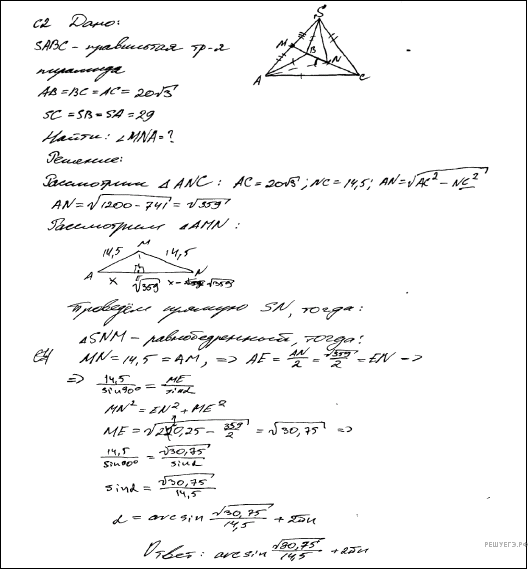 C2 Дано:
SABC – правильная тр-я
пирамида
AB = BC = AC = 20√3
SC = SB = SA = 29
Найти: ∠MNA = ?
Решение:
S
M
B
N
A
C
Рассмотрим △ANC: AC = 20√3; NC = 14,5; AN = √AC² – NC²
AN = √1200 – 741 = √359
Рассмотрим △AMN:
M
14,5 14,5
A E N
x √359 x – √359
Проведём прямую SN, тогда:
△SNM – равнобедренный, тогда:
C4 MN = 14,5 = AM, => AE = AN/2 = √359/2 = EN –>
=> 14,5/sin90° = ME/sinα
MN² = EN² + ME²
ME = √210,25 – 359/2 = √30,75 =>
14,5/sin90° = √30,75/sinα
sinα = √30,75/14,5
α = arcsin √30,75/14,5 + 2πn
Ответ: arcsin √30,75/14,5 + 2πn
РЕШУЕГЭ.РФ